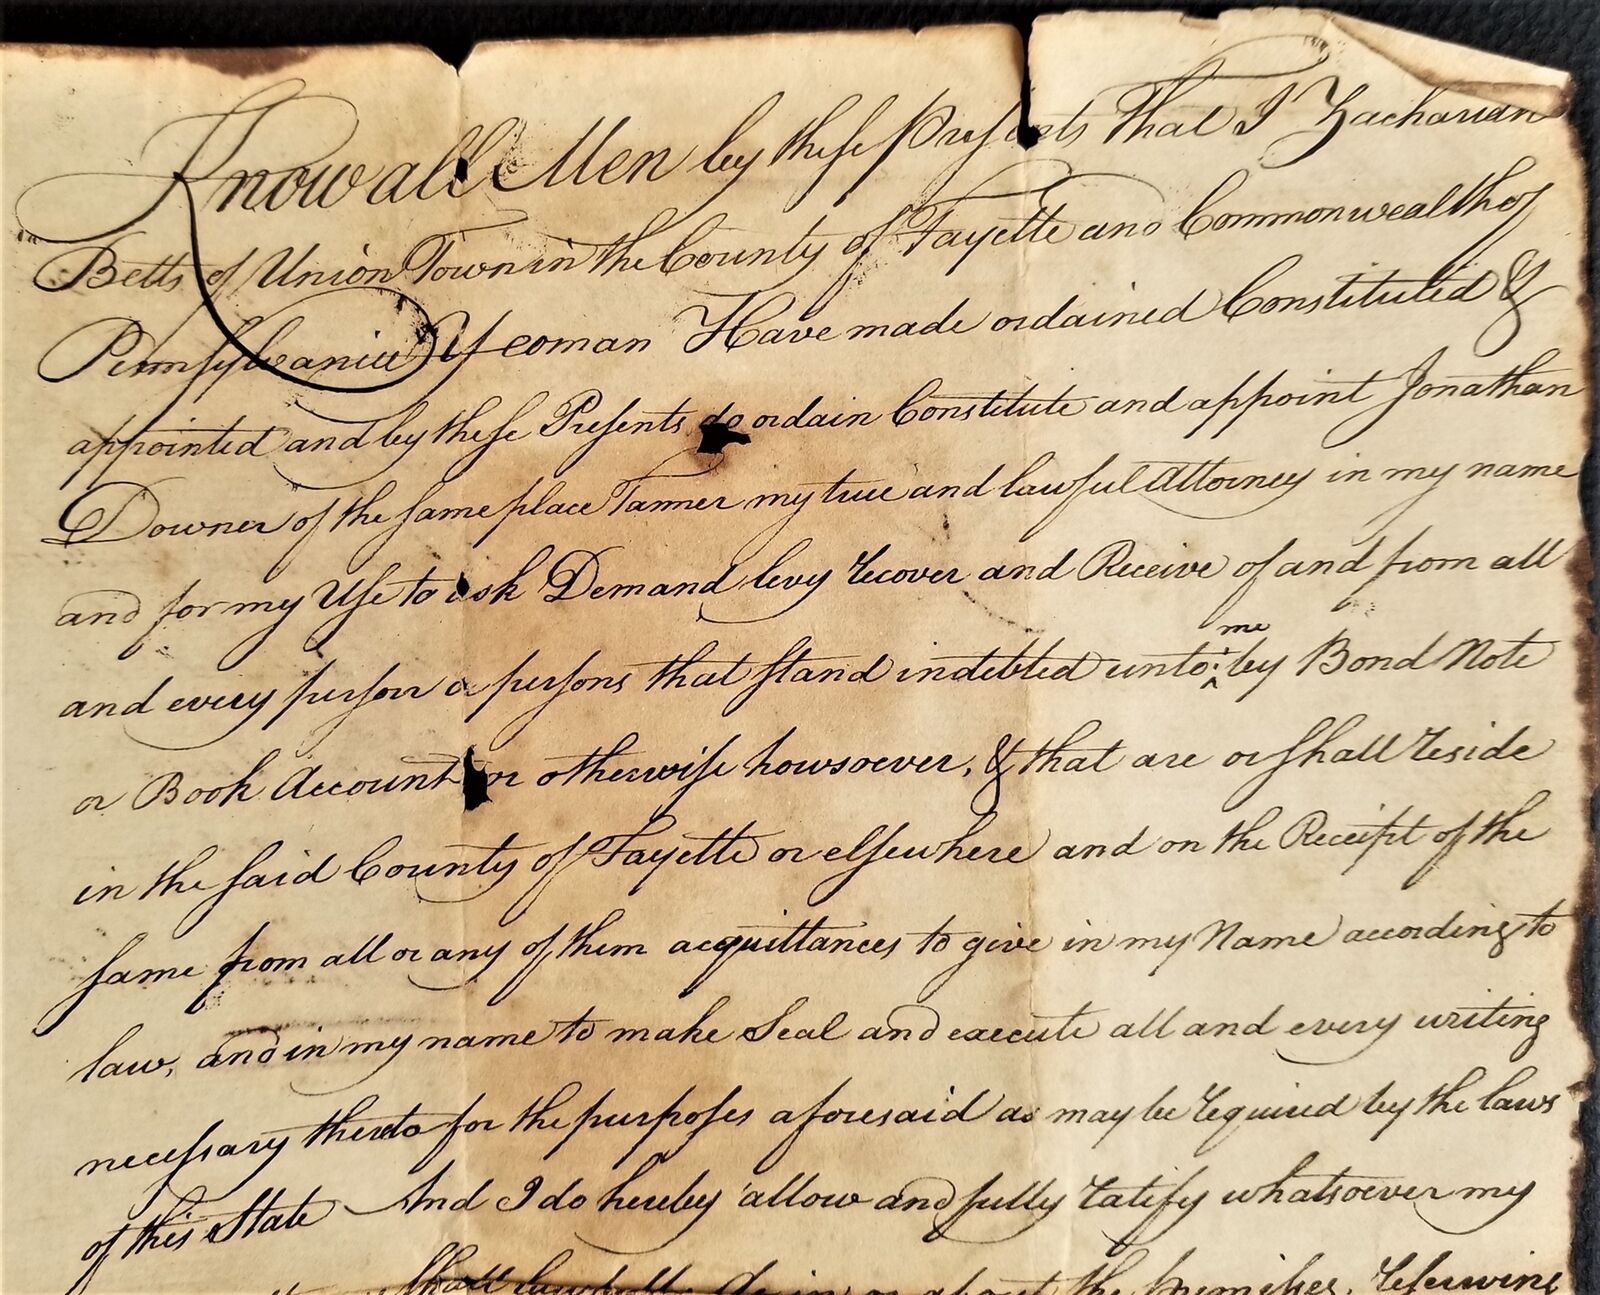 Know all Men by these Presents That I Zachariah
Betts of Union Town in the County of Fayette and Commonwealth of
Pennsylvania Yeoman Have made ordained Constituted &
appointed and by these Presents do ordain Constitute and appoint Jonathan
Downer of the same place Tanner my true and lawful Attorney in my name
and for my Use to ask Demand levy recover and Receive of and from all
me
and every person or persons that stand indebted unto by Bond Note
or Book Account or otherwise howsoever, & that are or shall reside
in the said County of Fayette or elsewhere and on the Receipt of the
same from all or any of them acquittances to give in my Name according to
law, and in my name to make Seal and execute all and every writing
necessary thereto for the purposes aforesaid as may be required by the laws
of this State And I do hereby allow and fully ratify whatsoever my
shall lawfully do in or about the premises, reserving